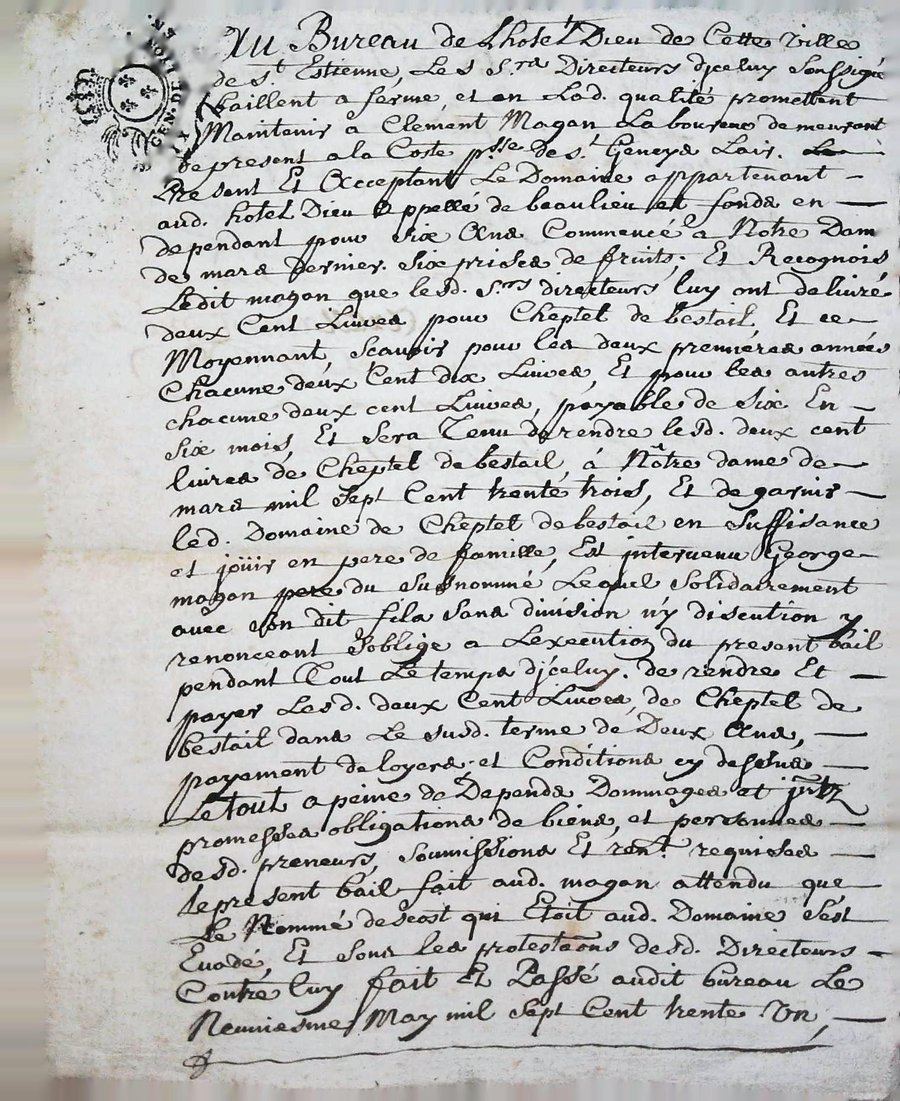 GEN. DE LION
Au Bureau de Lhotel Dieu de Cette Ville
de st Estienne, Les s srs Directeurs djceluy soussigné
baillent a ferme, et en Lad. qualité promettent
Maintenir a Clement Magan Laboureur demeurant
de present a la Coste psse De st Geneys Lair.
Present Et Acceptant Le Domaine appartenant —
aud. hotel Dieu Appellé de beaulieu et fonds en —
dependant pour six Ans Commencé a Notre Dam
de mars dernier. six prises de fruits, Et Recognois
Ledit magan que lesd. srs directeurs luy ont delivré
deux Cent Livres pour Cheptel de bestail, Et ce —
Moyennant, scavoir pour les deux premieres années
Chacune deux Cent dix Livres, Et pour les autres
chacune deux cent Livres, payable de six En —
six mois, Et sera Tenu de rendre lesd. deux cent
livres de Cheptel de bestail, á Nre dame de —
mars mil sept Cent trente trois, Et de garnir —
led. Domaine de Cheptel de bestail en suffisance
et joüir en pere de famille, Est intervenu George —
magan pere du susnommé Lequel solidairement
avec son dit fils sans division n'y discution y
renonceant s'oblige a Lexecution du present bail
pendant Tout Le temps djceluy. de rendre Et —
payer Lesd. deux Cent Livres, de Cheptel de
bestail dans Le susd. terme de Deux Ans, —
payement de loyers et Conditions cy dessus —
Le tout a peine de Depends Dommages et
promesses obligations de biens, et personnes —
desd. preneurs, soumissions Et ront. requises —
le present bail fait aud. magan attendu que
Le Nommé descost qui Etoit aud. Domaine s'est
Evadé, Et sans les protestaons desd. Directeurs —
Contre luy fait Et Passé audit bureau Le
Neuviesme May mil sept Cent trente Un, —